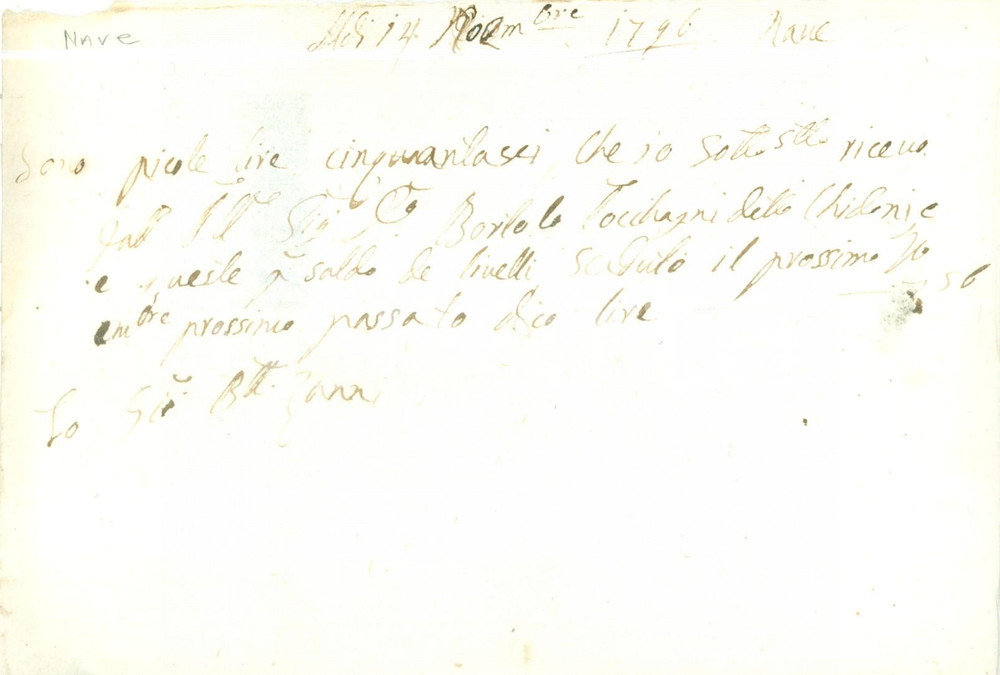 Nave
Adi 14 Novembre 1796 Nave
Sono picole lire cinquantasei che io sottostto riceuo
dal Sig Co Bortolo detto
e queste p saldo de livelli scaduto il prossimo No
embre prossimo passato dico lire 56
Io Gio Btt Zanni